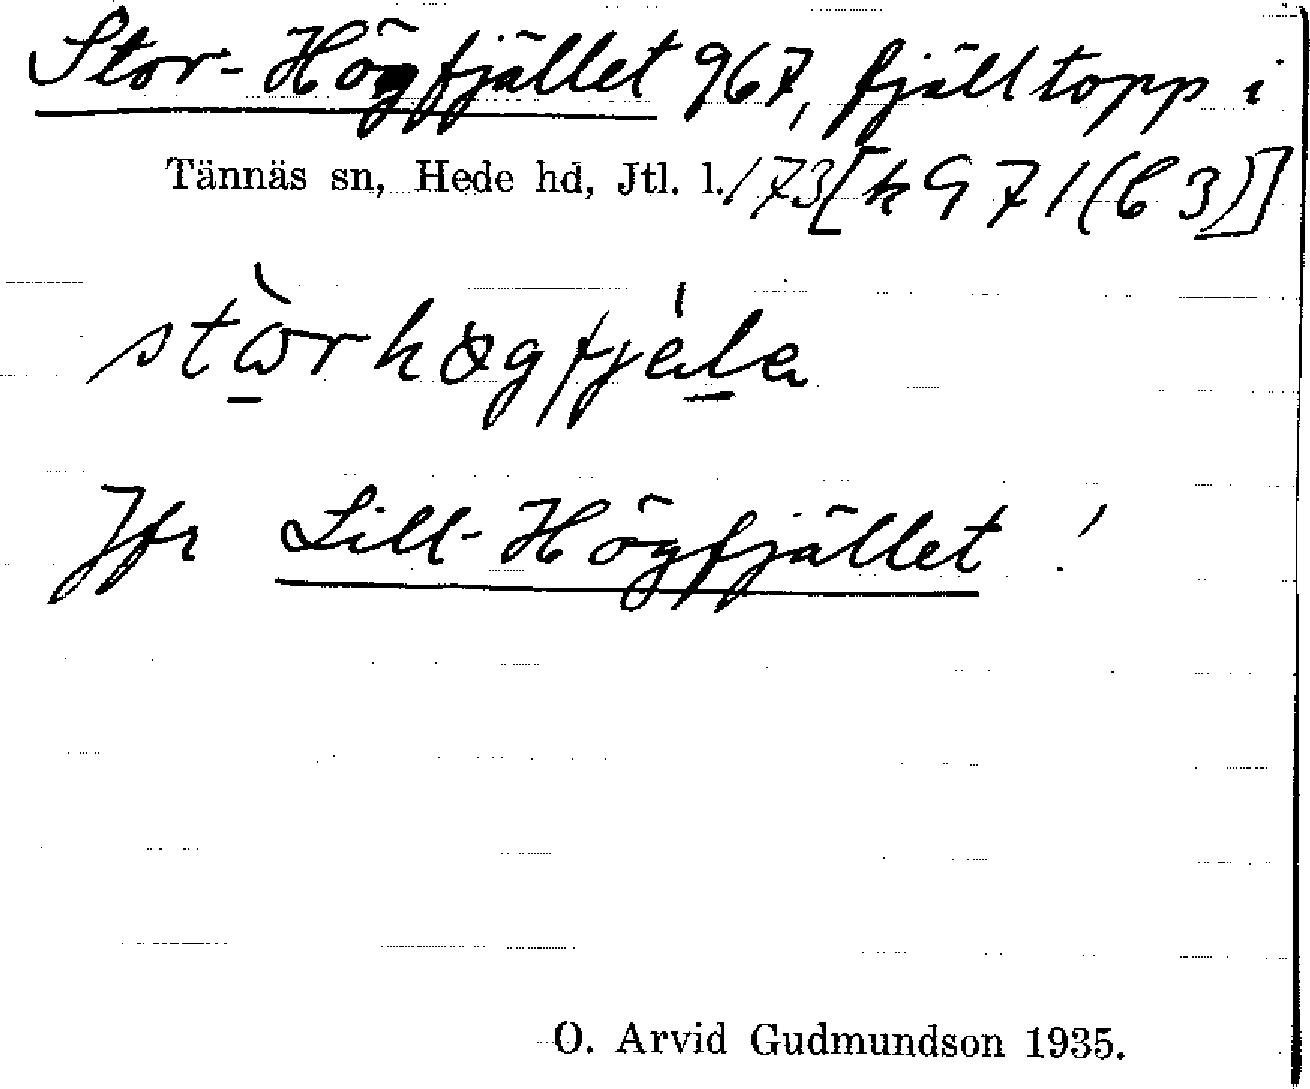 Stor-Högfjället 967, fjälltopp i
Tännäs sn, Hede hd, Jtl. l./73[k G 71(C 3)]
Jfr Lill-Högfjället!
O. Arvid Gudmundson 1935.